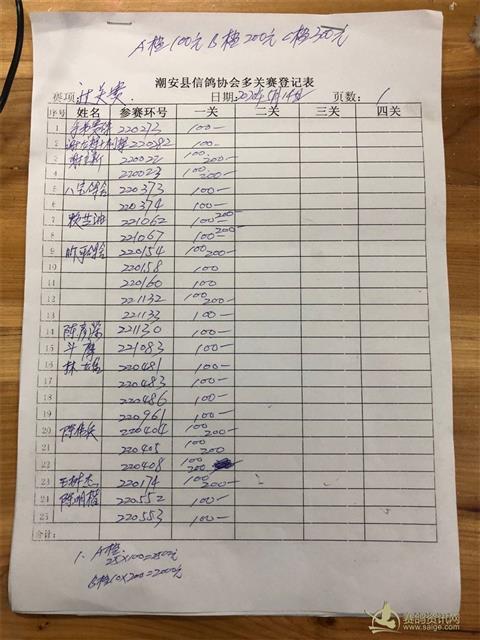 A档100元 B档200元 C档300元
潮安县信鸽协会多关赛登记表
赛项 日期:2020年5月14日 页数: 1
序号 姓名 参赛环号 一关 二关 三关 四关
1 220273 100—
2 220282 100—
3 220022 100 200—
4 220023 100 200—
5 220373 100—
6 220374 100—
7 221062 100 200—
8 221067 100 200—
9 220154 100 200—
10 220158 100
11 220160 100
12 221132 100 200—
13 221133 100—
14 221130 100—
15 221083 100—
16 220481 100—
17 220483 100—
18 220486 100—
19 220961 100—
20 220404 100 200—
21 220405 100 200
22 220408 100 200
23 220174 100 200—
24 陈明楷 220552 100—
25 220553 100—
合计:
1. A档
25×100=2500元
B档10×200=2000元
赛鸽资讯网
www.saige.com